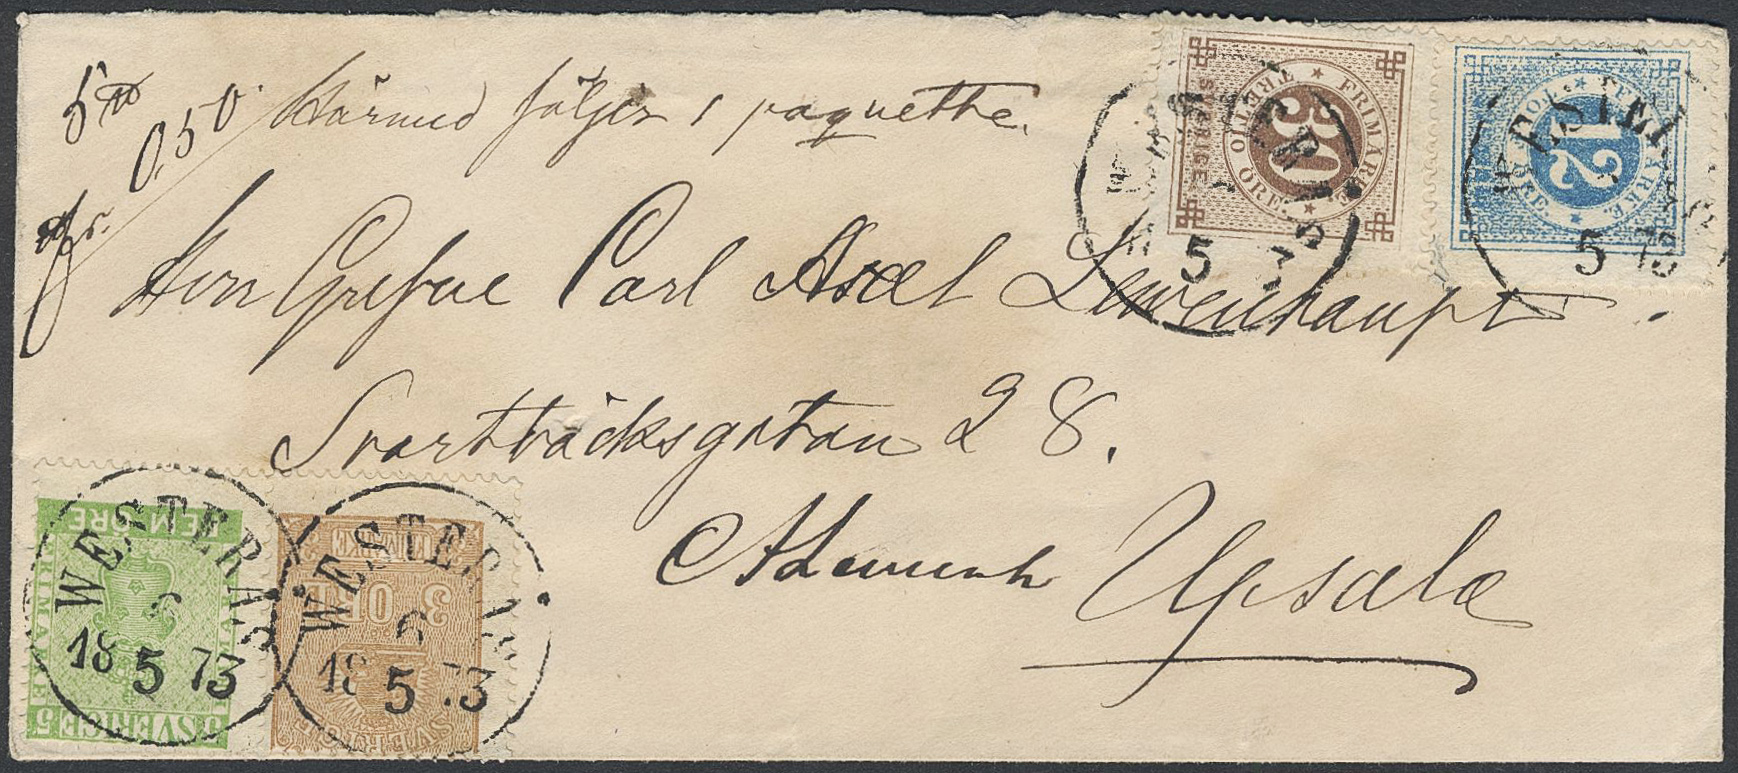 Härmed följer 1 paquette.
0,50.
Herr Grefve Carl Axel Lewenhaupt.
Svartbäcksgatan 28.
Upsala
SVERIGE
FRIMÄRKE
TRETTIO ÖRE.
30
TOLF ÖRE.
FRIMÄRKE
12
WESTERÅS
5 73
WESTERÅS
5 73
FEM ÖRE
FRIMÄRKE
5 SVERIGE 5
WESTERÅS
6
18 5 73
FRIMÄRKE
3 ÖRE
SVERIGE
WESTERÅS
6
18 5 73